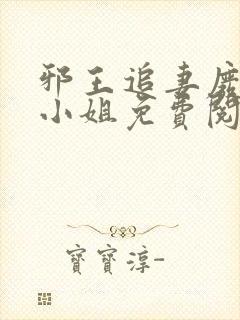 邪王追妻廢
小姐免費閱
寶寶淳-